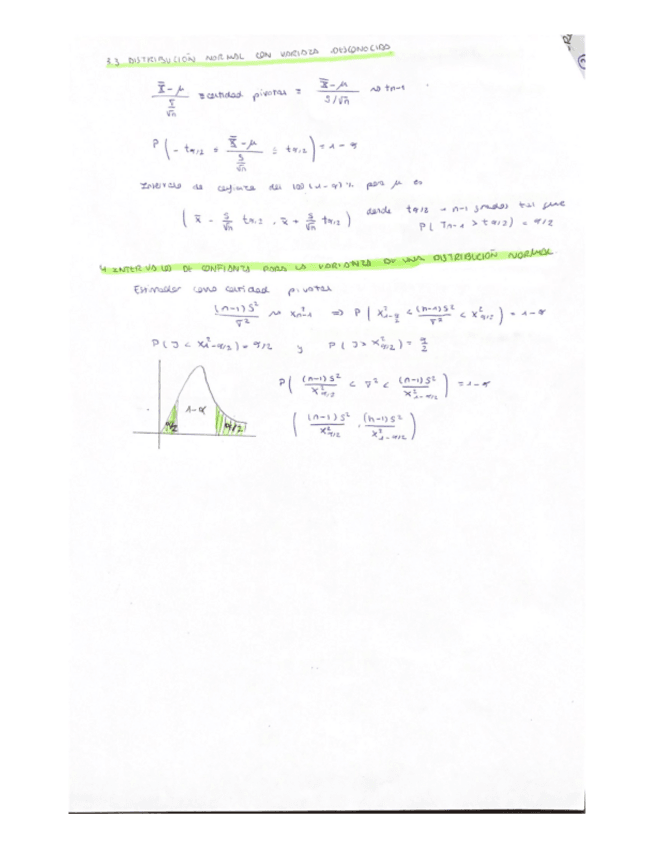 3.3 DISTRIBUCIÓN NORMAL CON VARIANZA DESCONOCIDA
(X̄ - μ) / (S/√n) = cantidad pivotas = (X̄ - μ) / (S/√n) ~ tn-1
P( - tα/2 ≤ (X̄ - μ) / (S/√n) ≤ tα/2 ) = 1 - α
Intervalo de confianza del 100(1-α)% para μ es
( x̄ - S/√n tα/2 , x̄ + S/√n tα/2 ) donde tα/2 → n-1 grados tal que
P( Tn-1 > tα/2 ) = α/2
4. INTERVALOS DE CONFIANZA PARA LA VARIANZA DE UNA DISTRIBUCIÓN NORMAL
Estimador como cantidad pivotas
(n-1)S²/σ² ~ χ²n-1 ⇒ P( χ²1-α/2 < (n-1)S²/σ² < χ²α/2 ) = 1-α
P( y < χ²1-α/2 ) = α/2 y P( y > χ²α/2 ) = α/2
P( (n-1)S²/χ²α/2 < σ² < (n-1)S²/χ²1-α/2 ) = 1-α
α/2 1-α α/2
( (n-1)S²/χ²α/2 , (n-1)S²/χ²1-α/2 )